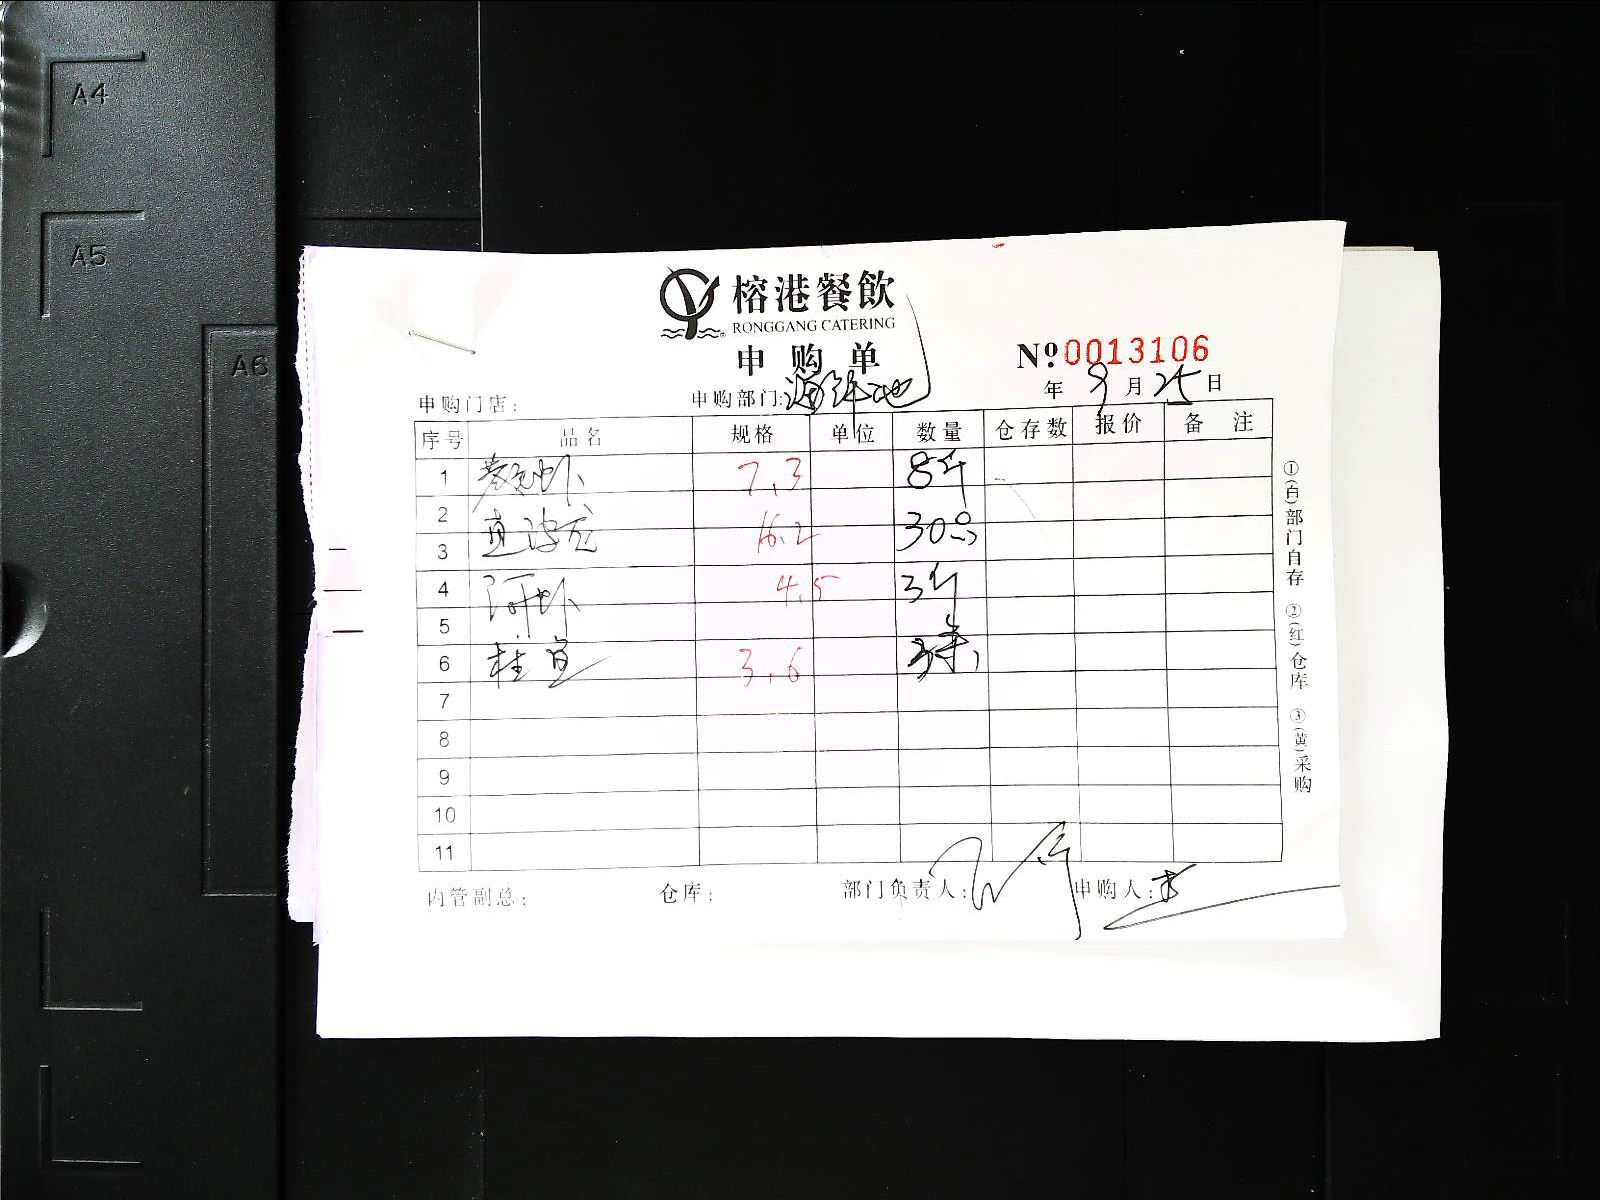 A4
A5
A6
榕港餐飲
RONGGANG CATERING
申购单
№ 0013106
年 9 月 25 日
申购门店：
申购部门：海鲜池
序号 品名 规格 单位 数量 仓存数 报价 备注
1 虾 7.3 8斤
2
3 波龙 16.2 30只
4 河虾 4.5 3斤
5
6 桂鱼 3.6 3条
7
8
9
10
11
①(白)部门自存 ②(红)仓库 ③(黄)采购
内管副总： 仓库： 部门负责人： 申购人：